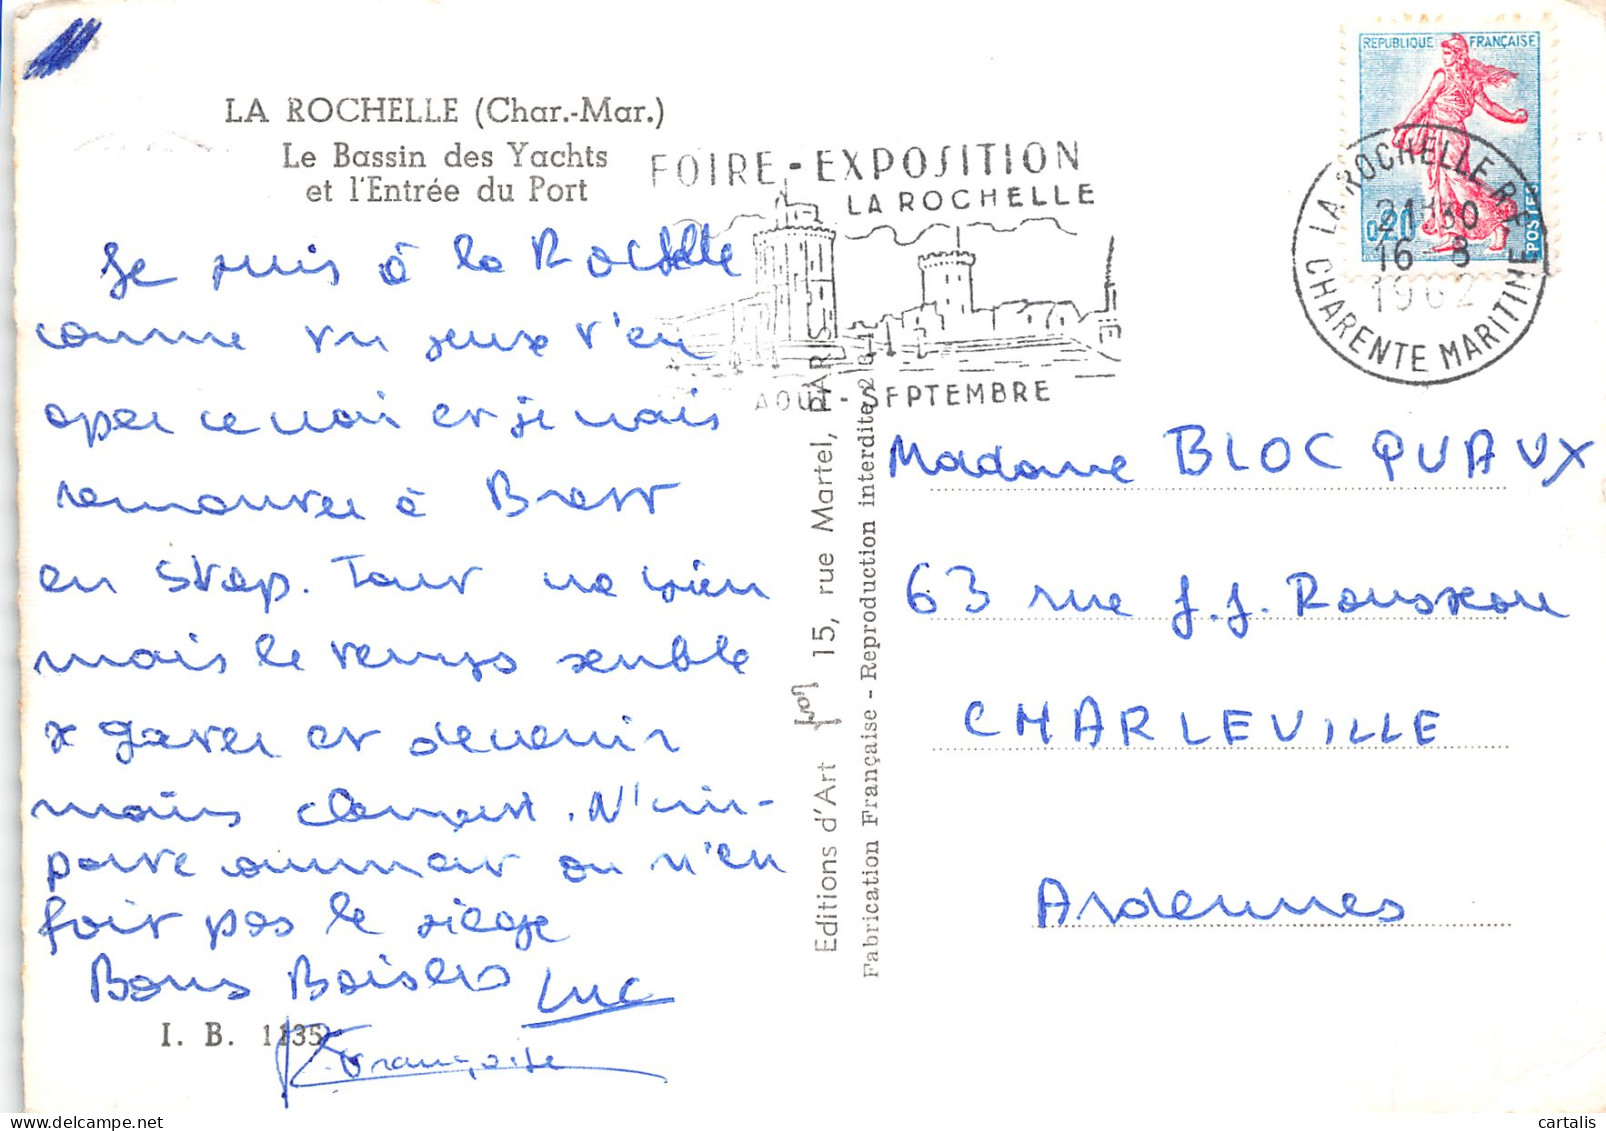 LA ROCHELLE (Char.-Mar.)
Le Bassin des Yachts
et l'Entrée du Port
Je suis à la Rochelle
comme tu peux t'en
aper ce voir et je vais
remonter à Brest
en stop. Tout va bien
mais le temps semble
se gater et devenir
moins clement. N'im-
porte comment on s'en
fait pas le siège
Bons Baisers Luc
Françoise
I. B. 1135
FOIRE - EXPOSITION
LA ROCHELLE
AOUT - SEPTEMBRE
REPUBLIQUE FRANÇAISE
0,20
POSTES
LA ROCHELLE R.P.
21H30
16-8
1962
CHARENTE MARITIME
Editions d'Art 15, rue Martel, PARIS
Fabrication Française - Reproduction interdite
Madame BLOCQUAUX
63 rue J.J. Rousseau
CHARLEVILLE
Ardennes
cartalis